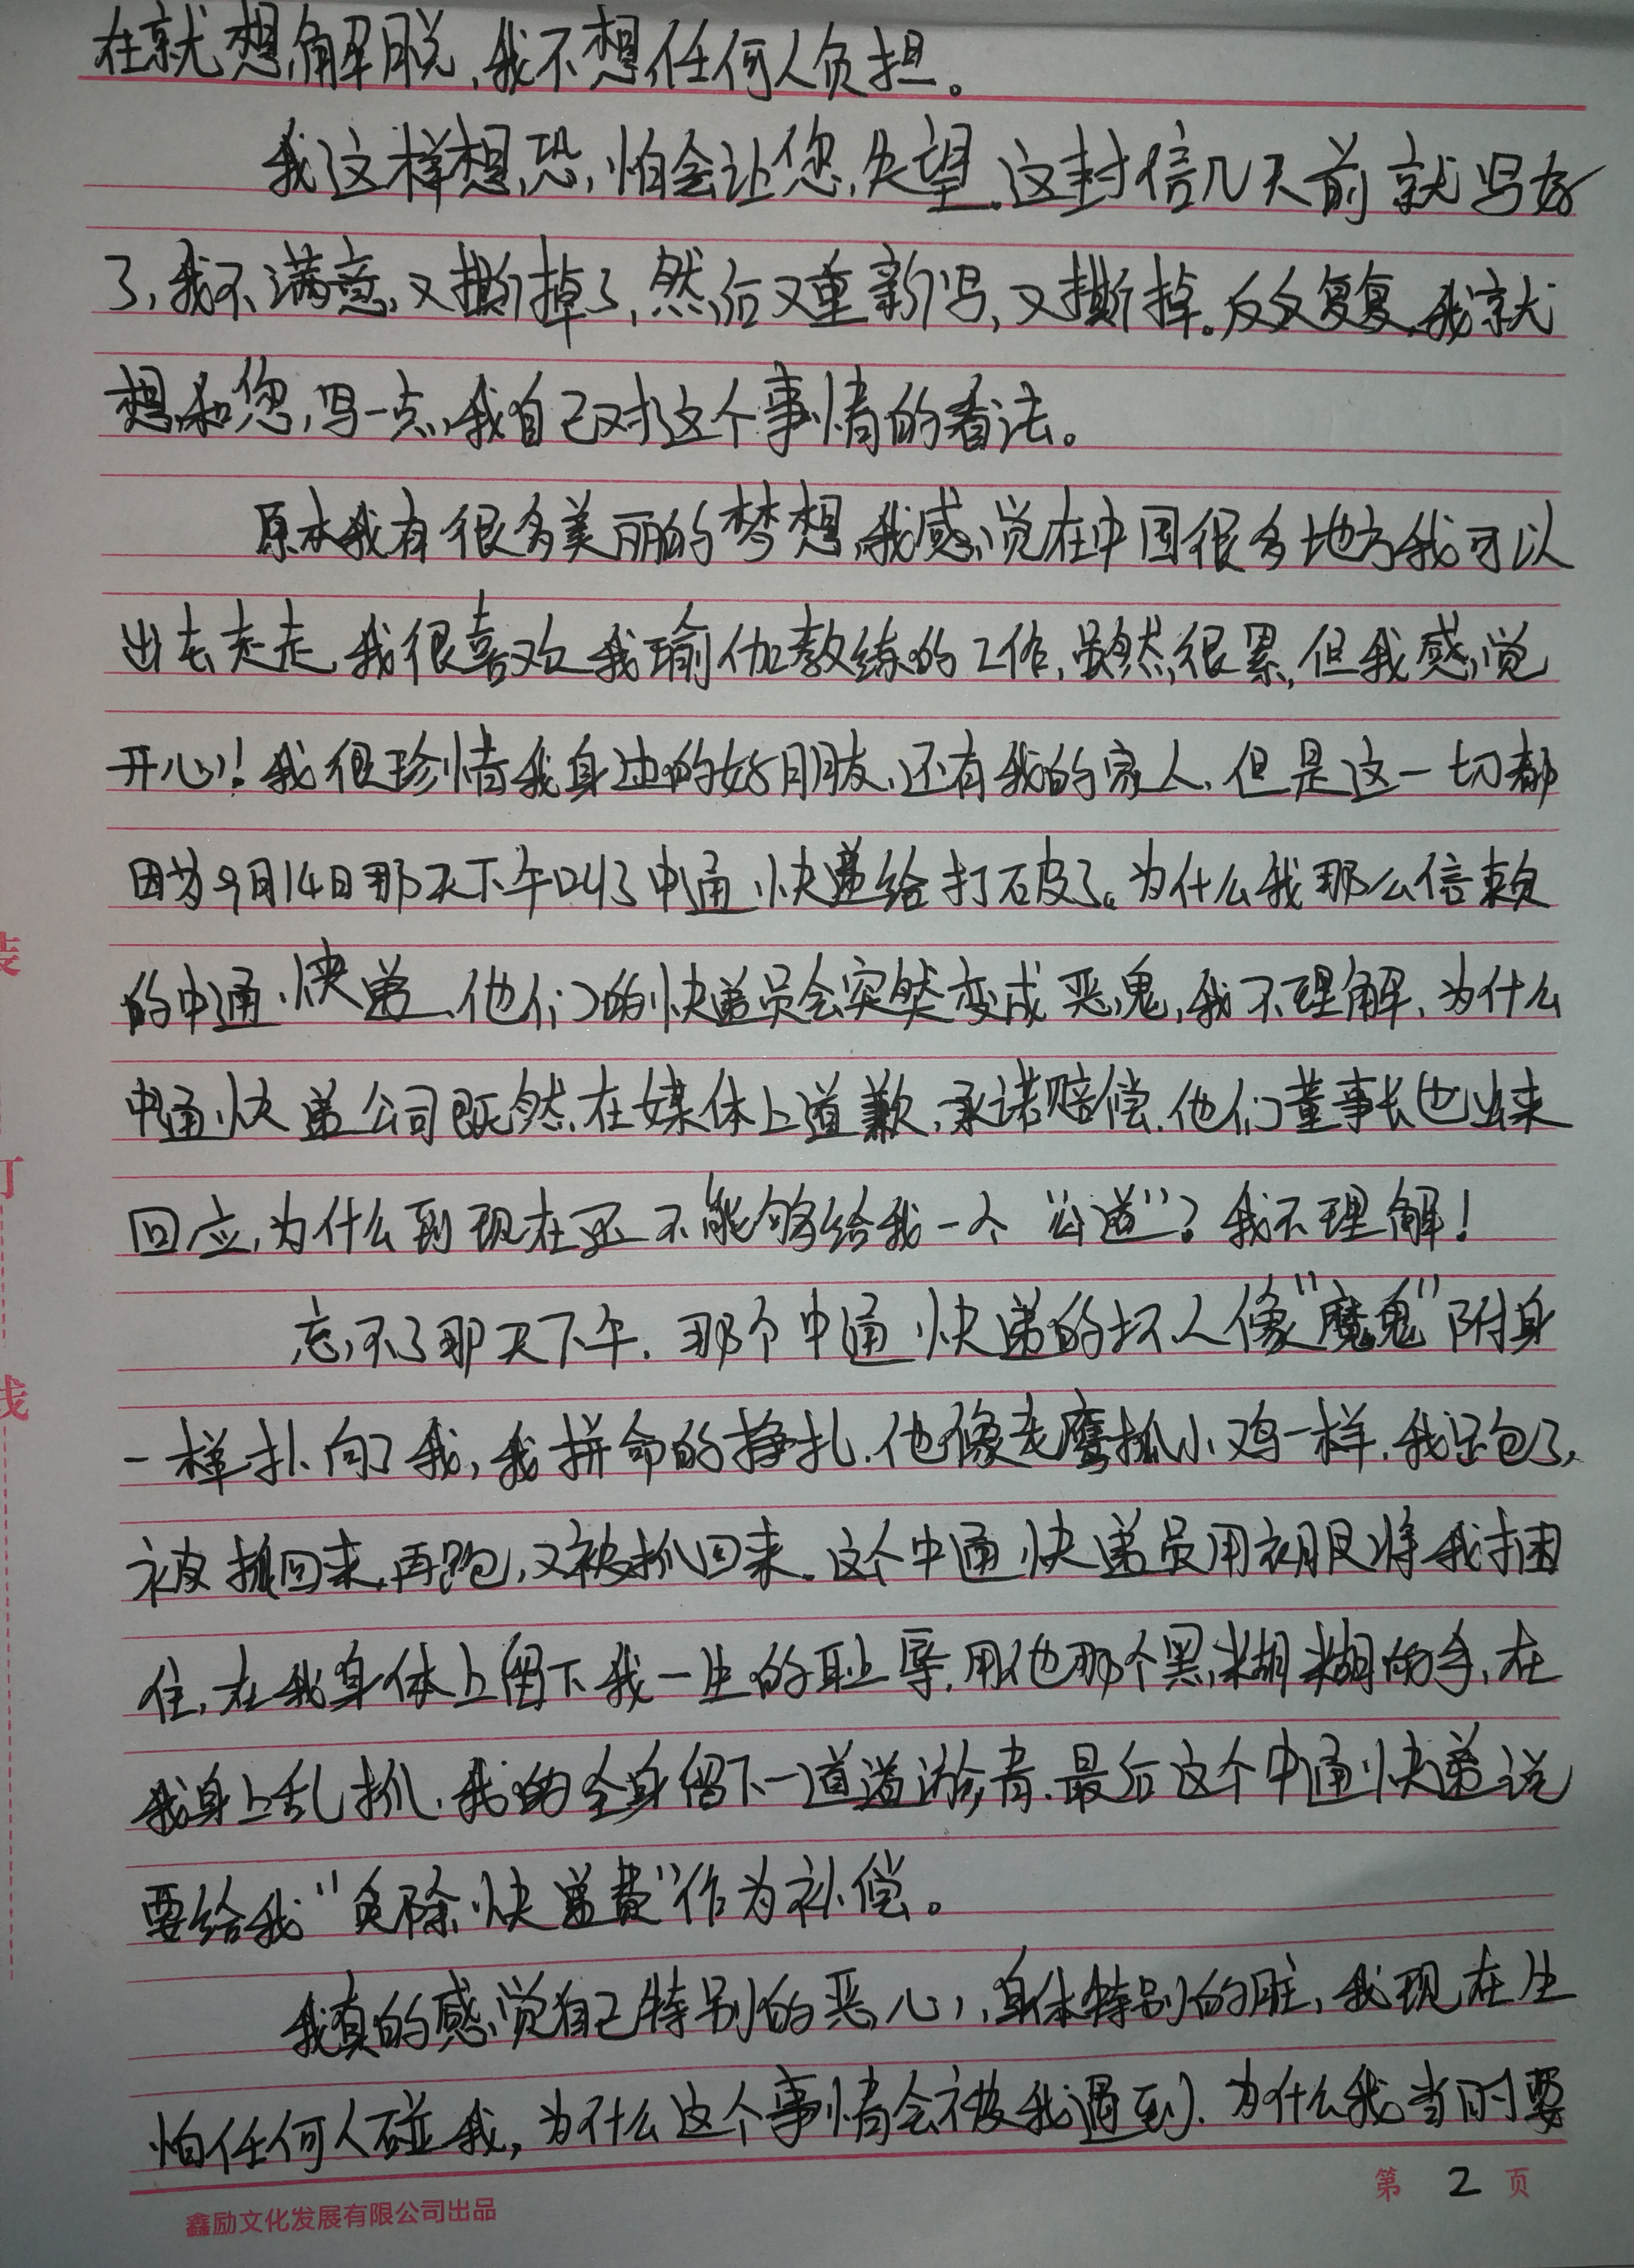 在就想解脱,我不想任何人负担。
我这样想,恐怕会让您失望。这封信几天前就写好
了,我不满意,又撕掉了,然后又重新写,又撕掉。反反复复,我就
想和您,写一点,我自己对这个事情的看法。
原本我有很多美丽的梦想,我感觉在中国很多地方我可以
出去走走,我很喜欢我瑜伽教练的工作,虽然很累,但我感觉
开心!我很珍惜我身边的好朋友,还有我的家人,但是这一切都
因为9月14日那天下午叫了中通快递给打破了。为什么我那么信赖
的中通快递,他们的快递员会突然变成恶鬼,我不理解,为什么
中通快递公司既然在媒体上道歉,承诺赔偿,他们董事长也出来
回应,为什么到现在还不能够给我一个“公道”?我不理解!
忘不了那天下午,那个中通快递的坏人像“魔鬼”附身
一样扑向了我,我拼命的挣扎,他像老鹰抓小鸡一样,我跑了,
被抓回来,再跑,又被抓回来,这个中通快递员用衣服将我捆
住,在我身体上留下我一生的耻辱,用他那个黑糊糊的手,在
我身上乱抓,我的全身留下一道道淤青,最后这个中通快递说
要给我“免除快递费”作为补偿。
我真的感觉自己特别的恶心,身体特别的脏,我现在生
怕任何人碰我,为什么这个事情会被我遇到,为什么我当时要
第 2 页
鑫励文化发展有限公司出品
装
订
线